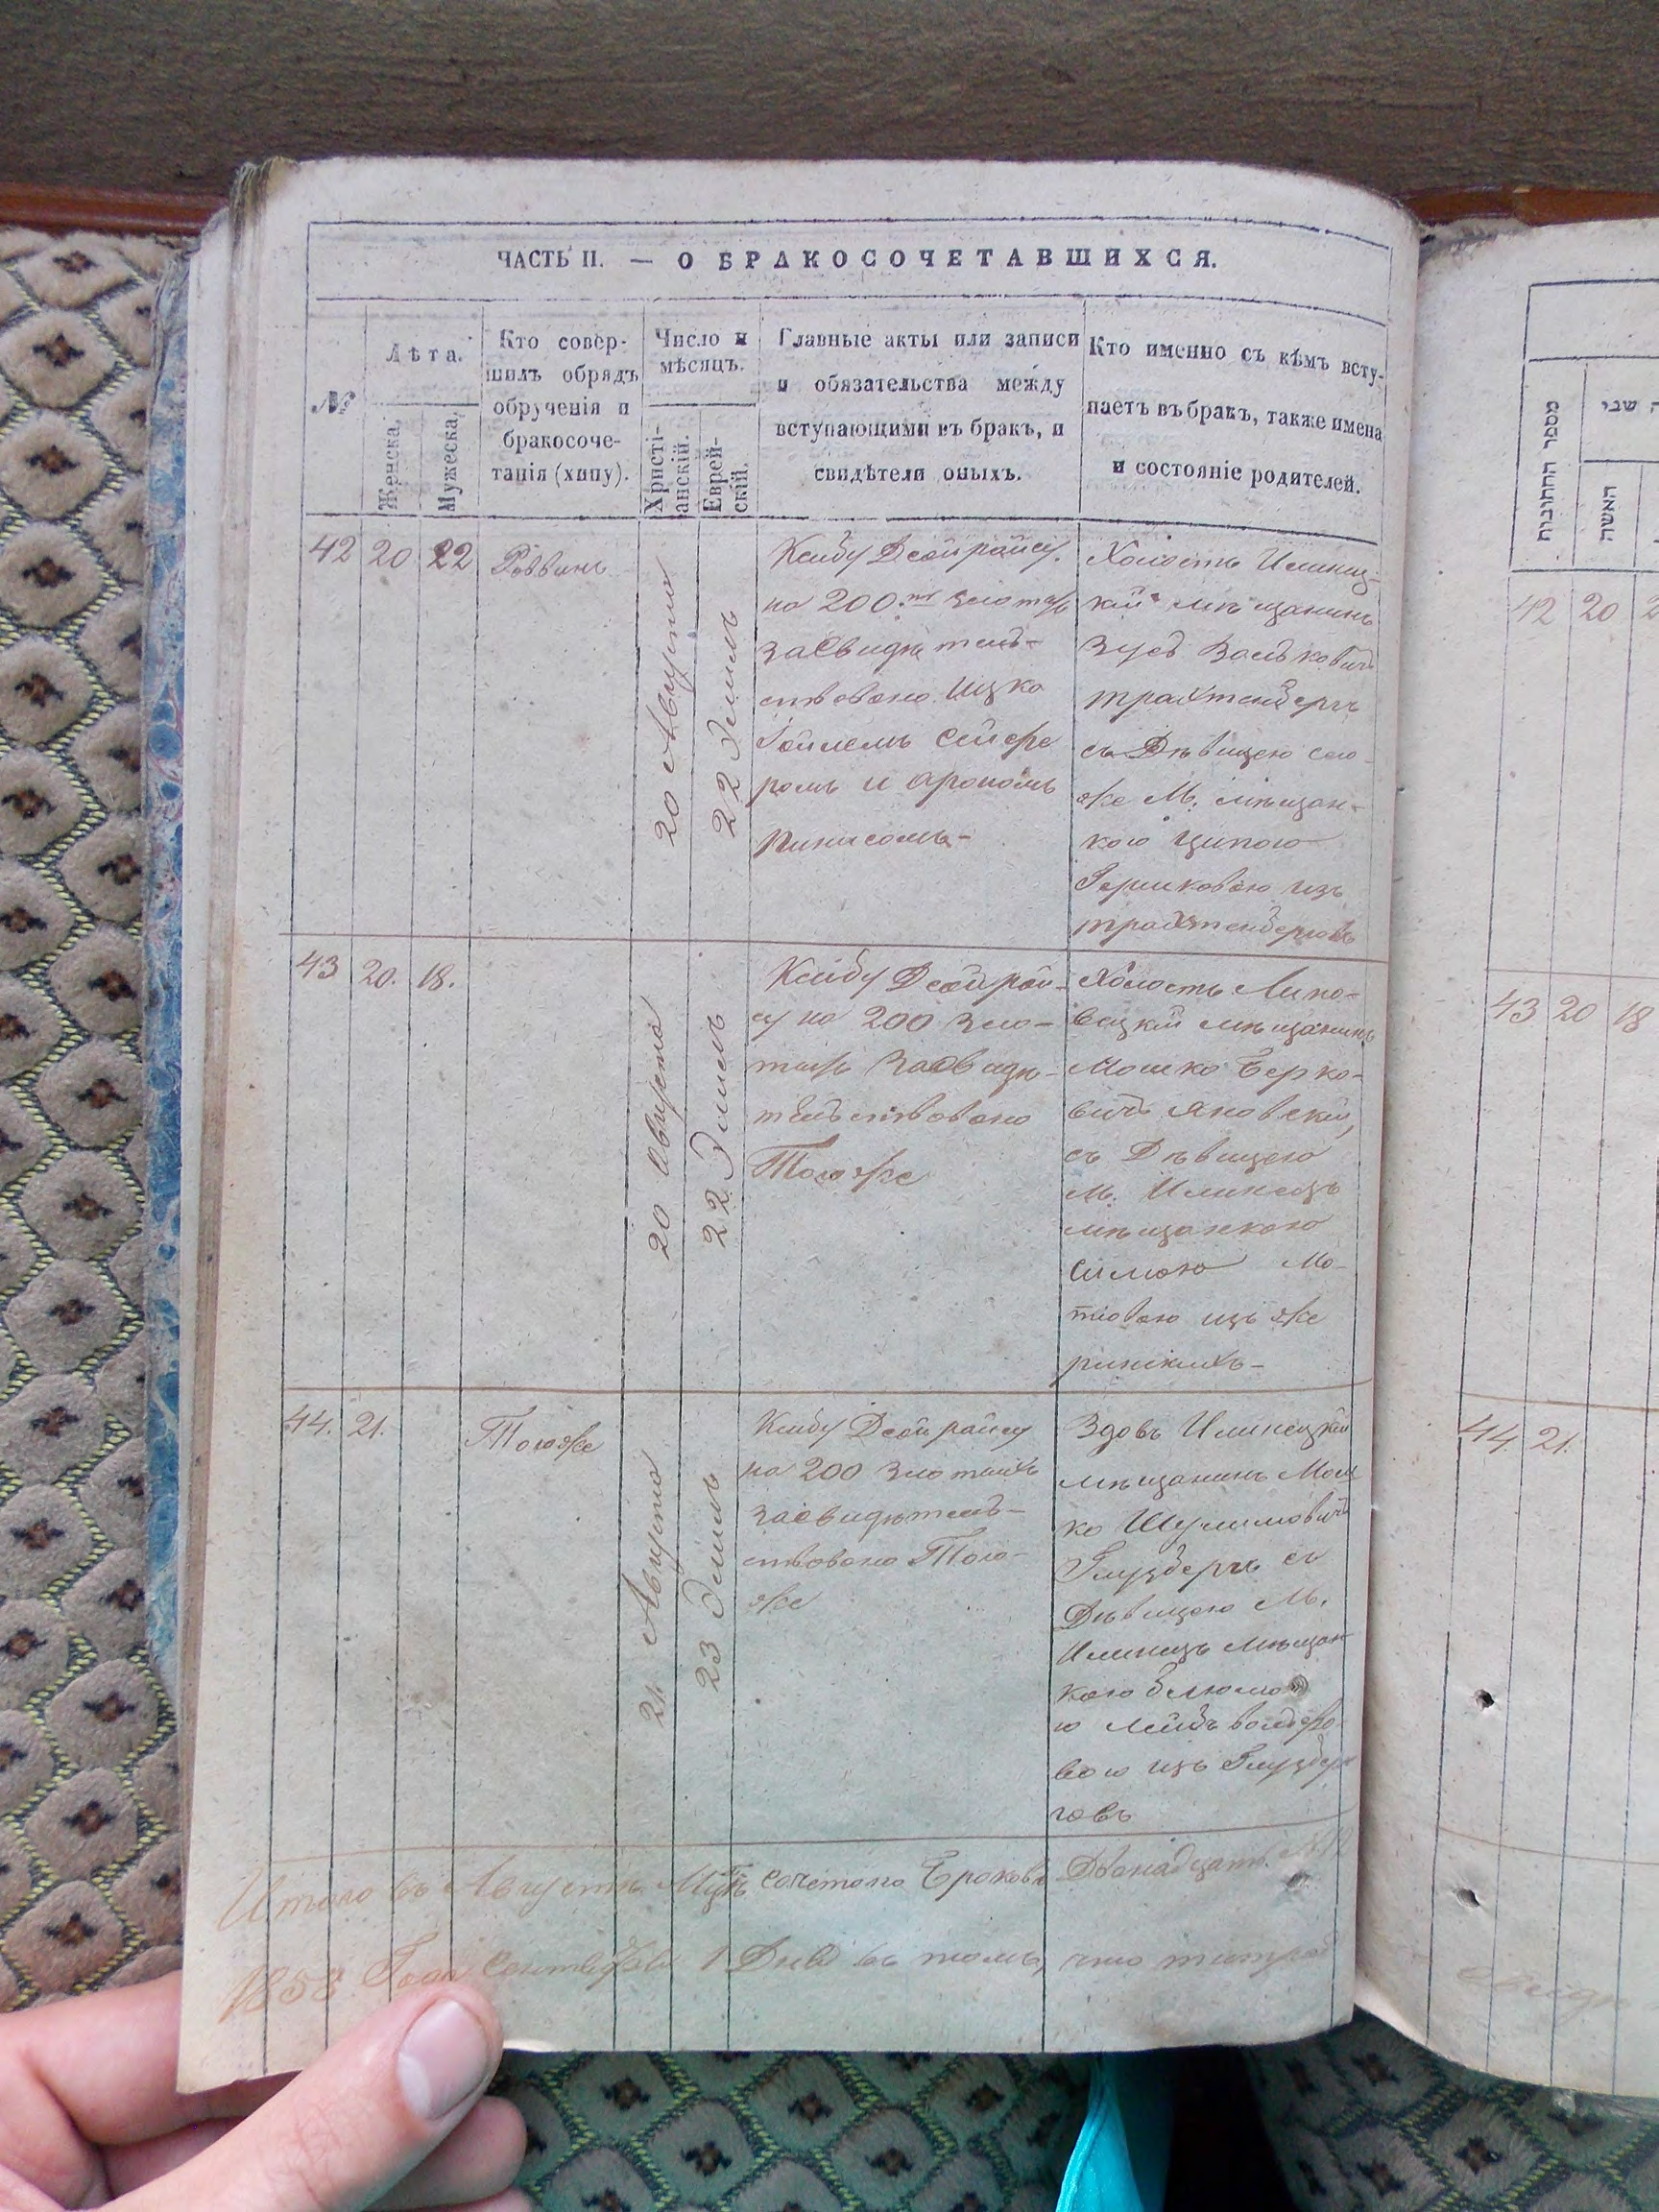 ЧАСТЬ II. — О БРАКОСОЧЕТАВШИХСЯ.
№
Лѣта.
Женска.
Мужеска.
Кто совер-
шилъ обрядъ
обрученія и
бракосоче-
танія (хипу).
Число и
мѣсяцъ.
Христі-
анскій.
Еврей-
скій.
Главные акты или записи
и обязательства между
вступающими въ бракъ, и
свидѣтели оныхъ.
Кто именно съ кѣмъ всту-
паетъ въ бракъ, также имена
и состояніе родителей.
42 20 22 Раввинъ
20 Августа
22 Элиль
на 200 злотыхъ
засвидѣтель-
ствовано Ицко
и Арономъ
Пинисомъ
Холостъ Илинец-
кій мѣщанинъ
Зусь Вольковичъ
Трахтенбергъ
съ Дѣвицею сего
же М. мѣщан-
кою Ципою
Гершковою изъ
Трахтенберговъ
43 20. 18.
20 Августа
22 Элиль
су на 200 зло-
тыхъ засвидѣ-
тельствовано
Тоюже
Холостъ Липо-
вецкій мѣщанинъ
Мошко Берко-
вичъ Яновскій,
съ Дѣвицею
М. Илинецъ
мѣщанкою
Симою Мо-
тіовою изъ Же
ринскихъ
44. 21. Тоюже
21 Августа
23 Элиль
на 200 злотыхъ
засвидѣтель-
ствовано Тою-
же
Вдовъ Илинецкій
мѣщанинъ Мош
ко Шулимовичъ
Глузбергъ съ
Дѣвицею М.
Илинецъ мѣщан
кою
вою изъ Глузбер
говъ
Итого въ Августѣ М-цѣ сочетано Браковъ Двонадцать
1858 Года Сентября 1 Дня въ томъ, что
מספר החתונות
האשה
42 20 2
43 20 18
44 21.